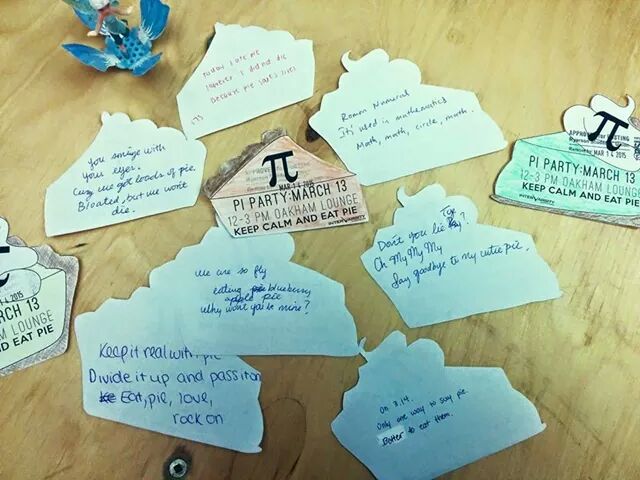 today I ate pie
luckily I did not die
because pie saves lives
Roman Numeral
It's used in mathematics
Math, math, circle, math.
You smize with
your eyes.
Cuz we got loads of pie.
Bloated, but we won't
die.
π
MAR 14 2015
PI PARTY:MARCH 13
12-3 PM OAKHAM LOUNGE
KEEP CALM AND EAT PIE
INTERVARSITY
π
MAR 14 2015
PI PARTY:MARCH 13
12-3 PM OAKHAM LOUNGE
KEEP CALM AND EAT PIE
INTERVARSITY
14 2015
RCH 13
M LOUNGE
ND EAT PIE
Don't you lie
Oh My My My
Say goodbye to my cutie pie.
we are so fly
eating blueberry
apple pie
Why won't ya be mine?
Keep it real with pie
Divide it up and pass it on
Eat, pie, love,
rock on
On 3.14.
Only one way to say pie.
Better to eat them.